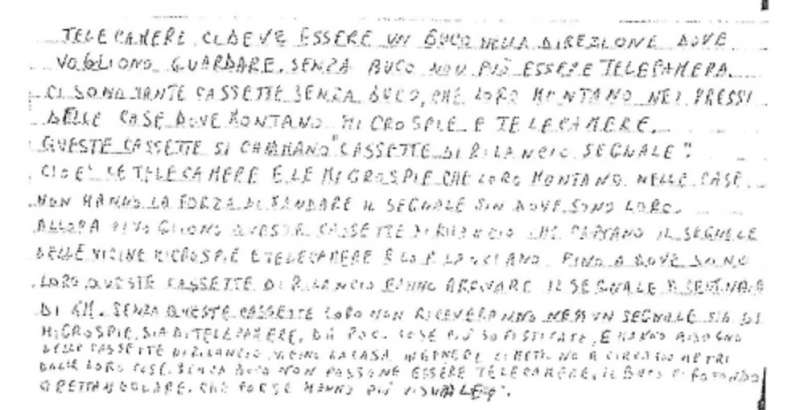 TELECAMERE CI DEVE ESSERE UN BUCO NELLA DIREZIONE DOVE
VOGLIONO GUARDARE, SENZA BUCO NON PIÙ ESSERE TELECAMERA.
CI SONO TANTE CASSETTE SENZA BUCO, CHE LORO MONTANO NEI PRESSI
DELLE CASE DOVE MONTANO MICROSPIE E TELECAMERE.
QUESTE CASSETTE SI CHIAMANO "CASSETTE DI RILANCIO SEGNALE".
CIOÈ LE TELECAMERE E LE MICROSPIE CHE LORO MONTANO NELLE CASE
NON HANNO LA FORZA DI MANDARE IL SEGNALE SIN DOVE SONO LORO.
ALLORA CI VOGLIONO QUESTE CASSETTE DI RILANCIO CHE IL SEGNALE
DELLE VICINE MICROSPIE E TELECAMERE E LO RILANCIANO FINO A DOVE SONO
LORO, QUESTE CASSETTE DI RILANCIO FANNO ARRIVARE IL SEGNALE A
DI KM. SENZA QUESTE CASSETTE LORO NON RICEVERANNO NESSUN SEGNALE SIA DI
MICROSPIE, SIA DI TELECAMERE, COSE PIÙ SOFISTICATE, E HANNO BISOGNO
DELLE CASSETTE DI RILANCIO VICINO LA CASA IN GENERE METRI
DALLE LORO CASE. SENZA BUCO NON POSSONO ESSERE TELECAMERE, IL BUCO È ROTONDO
O RETTANGOLARE. CHE FORSE HANNO PIÙ